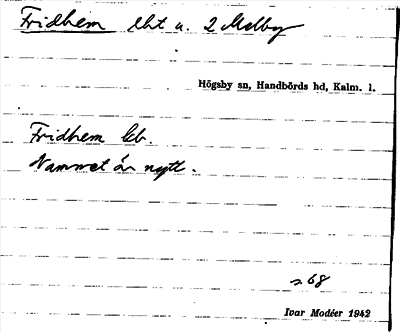 Fridhem lht u. 2 Melby
Högsby sn, Handbörds hd, Kalm. l.
Fridhem leb.
Namnet är nytt.
s. 68
Ivar Modéer 1942